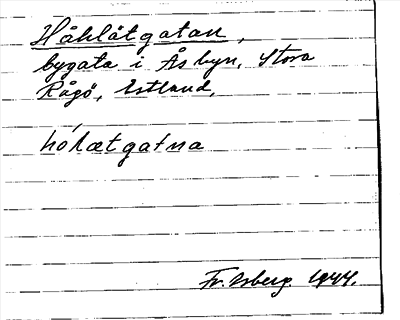 Håklåtgatan,
bygata i Åsbyn, Stora
Rågö, Estland.
hókætgatna
Fr. Isberg 1944.